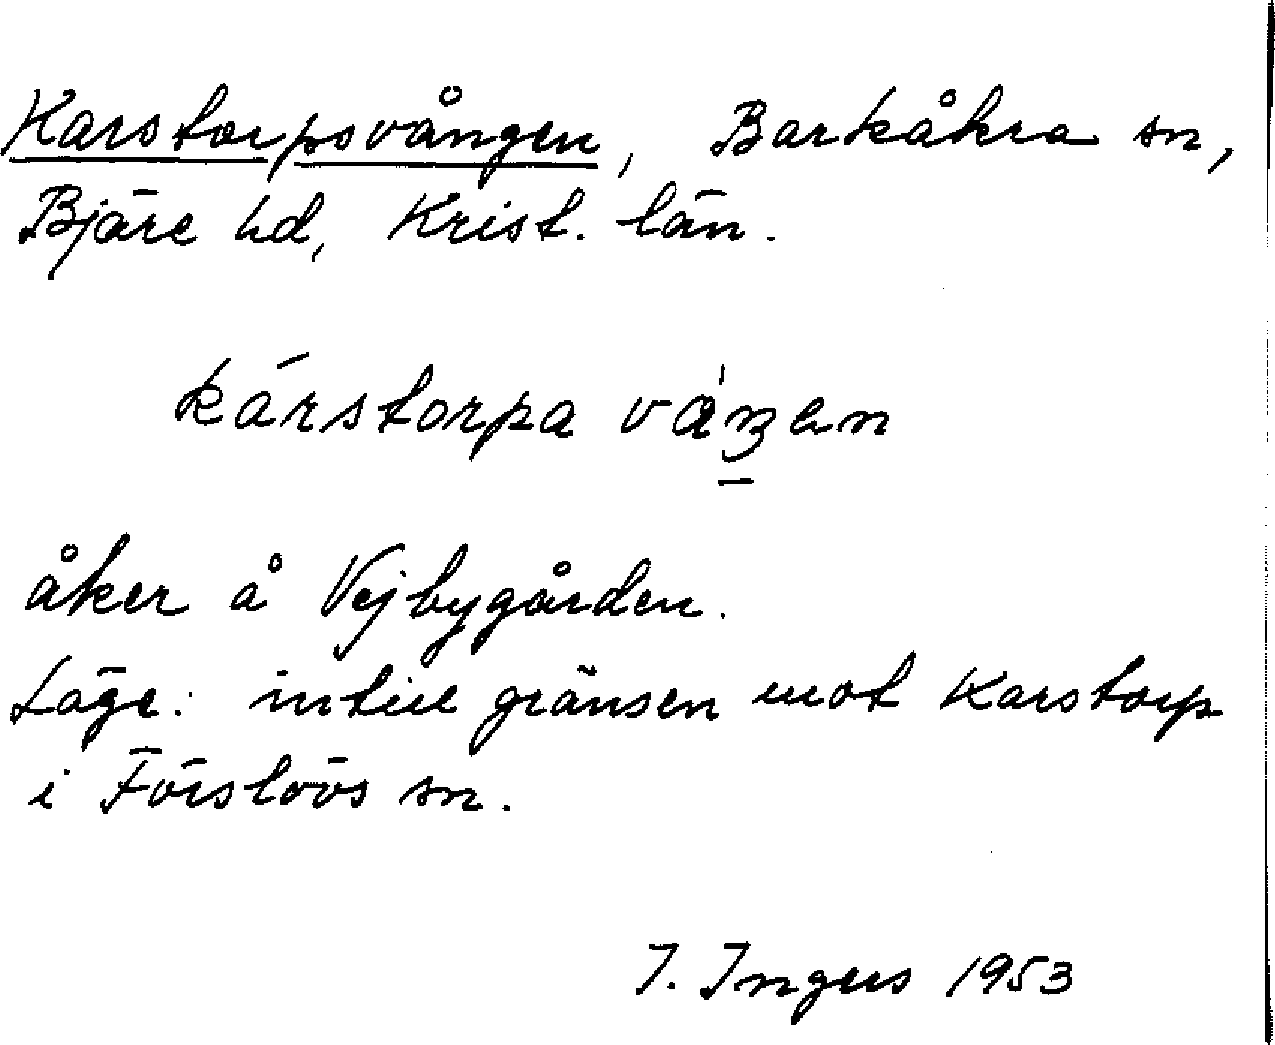 Karstorpsvången, Barkåkra sn,
Bjäre hd, Krist. län.
kárstorpa váŋen
åker å Vejbygården.
Läge: intill gränsen mot Karstorp
i Förslövs sn.
I. Ingers 1953